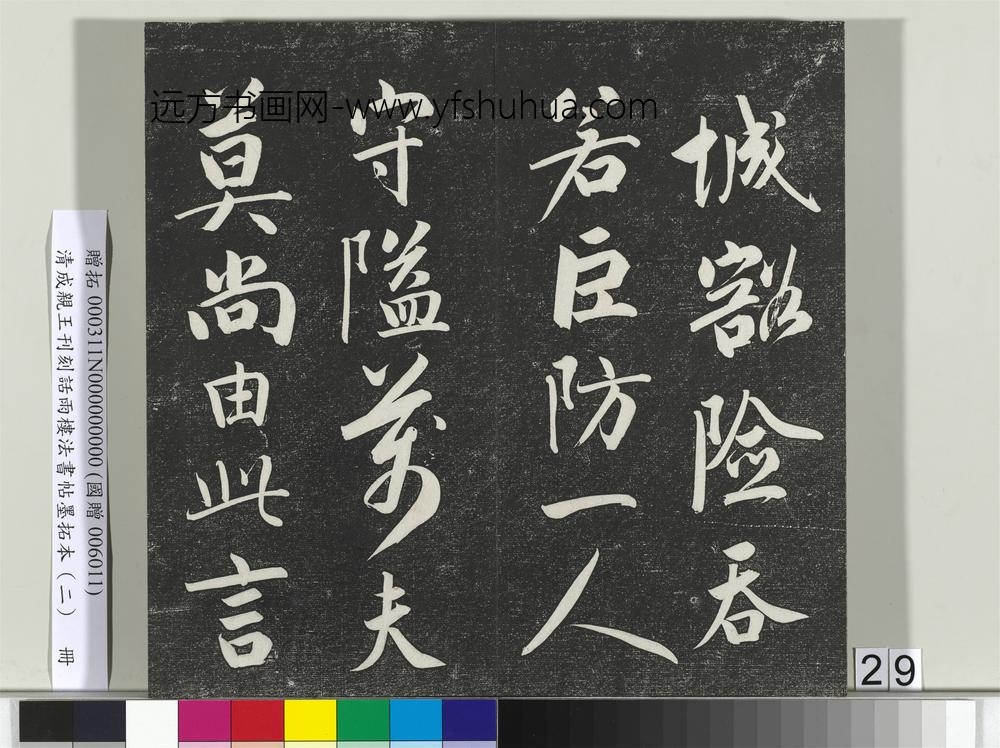 远方书画网-www.yfshuhua.com
城豁險吞
若巨防一人
守隘萬夫
莫尚由此言
贈拓 000311N000000000 (國贈 006011)
清成親王刊刻話雨樓法書帖墨拓本(二) 冊
29